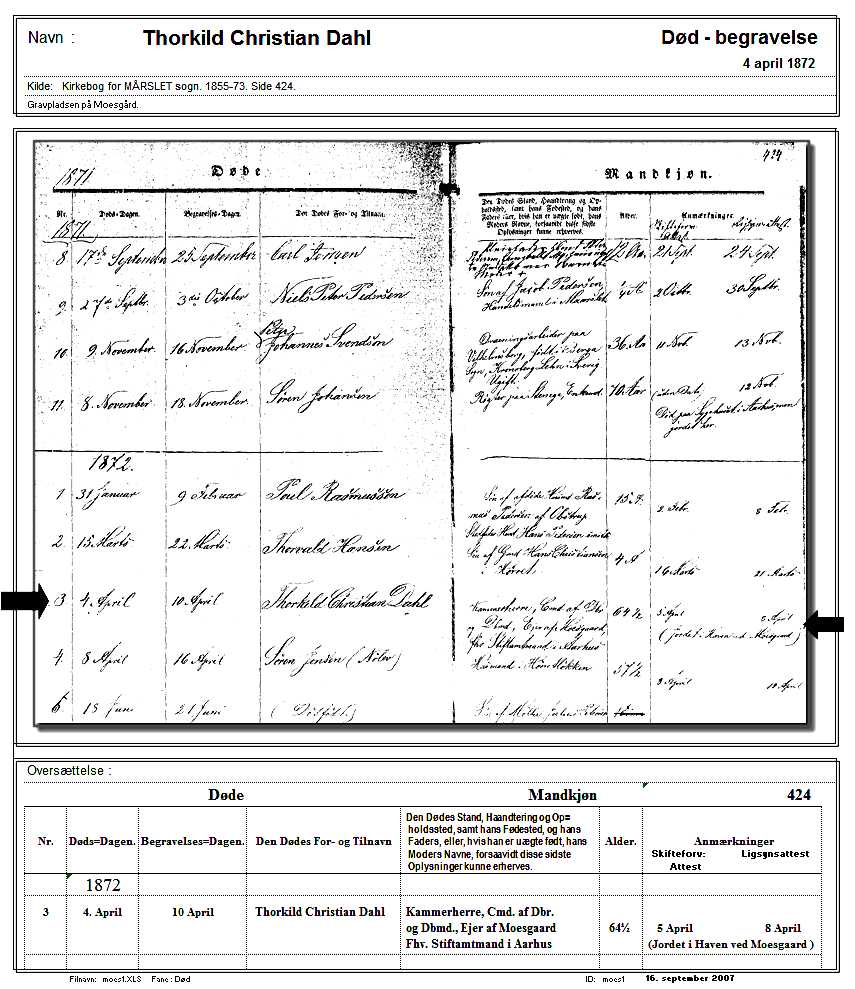 Navn : Thorkild Christian Dahl Død - begravelse
4 april 1872
Kilde: Kirkebog for MÅRSLET sogn. 1855-73. Side 424.
Gravpladsen på Moesgård.
424
1871 Døde Mandkjøn.
Nr. Døds-Dagen. Begravelses-Dagen. Den Dødes For- og Tilnavn.
Den Dødes Stand, Haandtering og Op-
holdssted, samt hans Fødested, og hans
Faders, eller, hvis han er uægte født, hans
Moders Navne, forsaavidt disse sidste
Oplysninger kunne erhverves.
Alder. Anmærkninger.
1871.
8 17de September 25 September Carl Jensen 21 Sept. 24 Sept.
9. 27de Septbr. 3die October Niels Peter Pedersen
Søn af Jacob Pedersen,
Handelsmand i Maarslet
2 Octbr. 30 Septbr.
10. 9. November. 16 November. Johannes Svendsøn 36 Aa 11 Nvb. 13 Nvb.
Ugift.
11. 8. November. 18. November. Søren Johansen 70 Aar (uden Dato) 12 Nvb.
jordet her.
1872.
1 31 Januar 9 Februar Poul Rasmussøn 2 Febr. 8 Feb.
2. 15 Marts 22 Marts Thorvald Hansen
Søn af Gmd Hans Christiansen
i Hørret.
4 A 16 Marts 21 Marts
3 4 April 10 April Thorkild Christian Dahl
Kammerherre, Cmd. af Dbr
og Dbmd., Ejer af Moesgaard,
fhv. Stiftamtmand i Aarhus
64½ 5 April 8 April
(jordet i Haven ved Moesgaard)
4. 8 April 16 April Søren Jensen (Nølev) Huusmand i 57½ 9 April 10 April
5 15 Juni 21 Juni (Dødfødt.)
Oversættelse :
Døde Mandkjøn 424
Nr. Døds=Dagen. Begravelses=Dagen. Den Dødes For- og Tilnavn
Den Dødes Stand, Haandtering og Op=
holdssted, samt hans Fødested, og hans
Faders, eller, hvis han er uægte født, hans
Moders Navne, forsaavidt disse sidste
Oplysninger kunne erherves.
Alder. Anmærkninger
Skifteforv: Ligsynsattest
Attest
1872
3 4. April 10 April Thorkild Christian Dahl Kammerherre, Cmd. af Dbr.
og Dbmd., Ejer af Moesgaard 64½ 5 April 8 April
Fhv. Stiftamtmand i Aarhus (Jordet i Haven ved Moesgaard )
Filnavn: moes1.XLS Fane : Død ID: moes1 16. september 2007